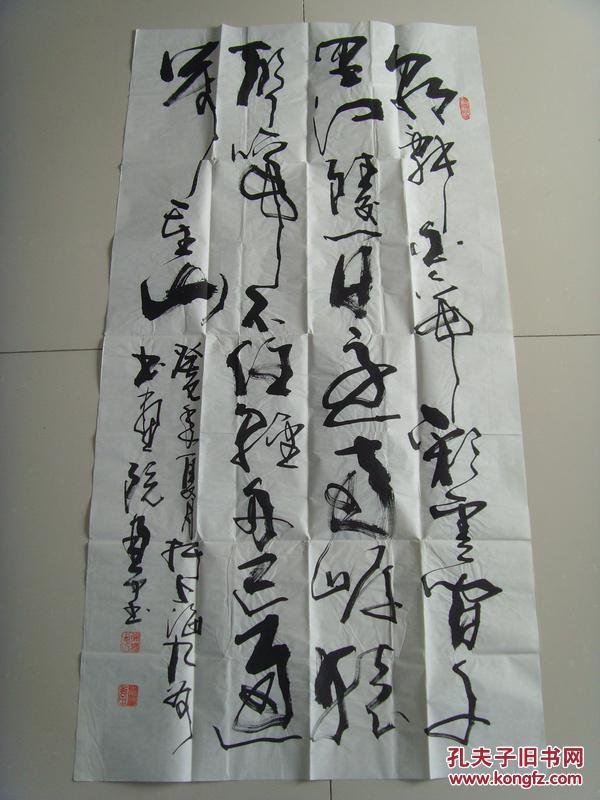 朝辭白帝彩雲間千
里江陵一日還兩岸猿
聲啼不住輕舟已過
萬重山
癸巳年夏月於上海九
書畫院
孔夫子旧书网
www.kongfz.com